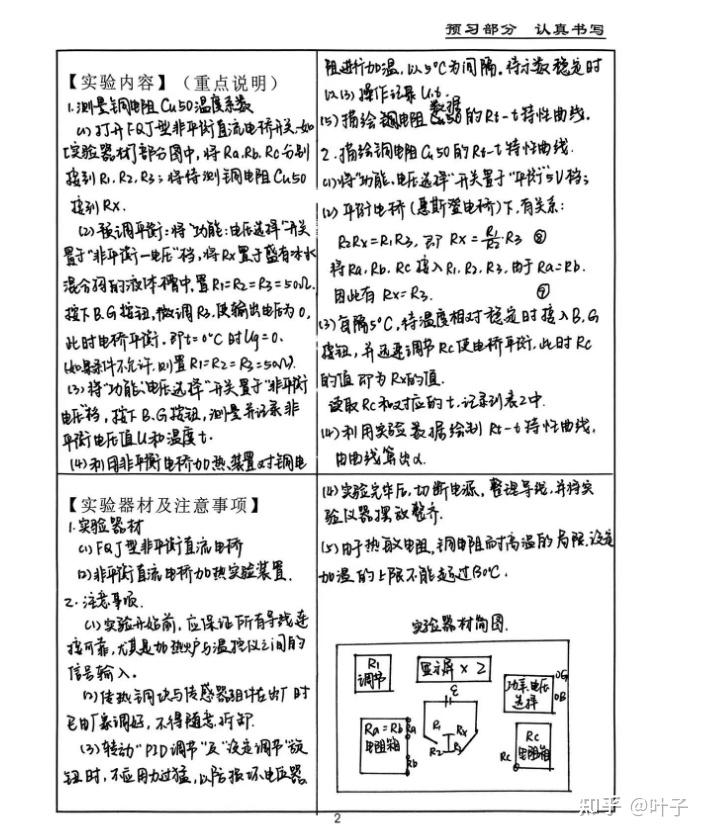 预习部分 认真书写
【实验内容】（重点说明）
1.测量铜电阻Cu50温度系数
(1)打开FQJ型非平衡直流电桥开关,如
[实验器材]部分图中,将Ra、Rb、Rc分别
接到R1、R2、R3;将待测铜电阻Cu50
接到RX.
(2)预调平衡:将"功能、电压选择"开关
置于"非平衡—电压"档,将RX置于盛有冰水
混合物的液体槽中,置R1=R2=R3=50Ω.
按下B、G按钮,微调R3,使输出电压为0,
此时电桥平衡.即t=0℃时Ug=0.
(如果条件不允许,则置R1=R2=R3=50Ω).
(3)将"功能、电压选择"开关置于"非平衡
电压"档,按下B、G按钮,测量并记录非
平衡电压值U和温度t.
(4)利用非平衡电桥加热装置对铜电
阻进行加温,以5℃为间隔.待示数稳定时
以(3)操作记录U、t.
(5)描绘铜电阻数据的Rt-t特性曲线.
2.描绘铜电阻Cu50的Rt-t特性曲线.
(1)将"功能、电压选择"开关置于"平衡"5V档;
(2)平衡电桥(惠斯登电桥)下,有关系:
R2RX=R1R3,即RX=R1/R2·R3 ⑧
将Ra、Rb、Rc接入R1、R2、R3,由于Ra=Rb.
因此有RX=R3. ⑨
(3)每隔5℃,待温度相对稳定时接入B、G
按钮,并迅速调节Rc使电桥平衡,此时Rc
的值即为RX的值.
读取Rc和对应的t.记录到表2中.
(4)利用实验数据绘制Rt-t特性曲线,
由曲线算出α.
【实验器材及注意事项】
1.实验器材
(1)FQJ型非平衡直流电桥
(2)非平衡直流电桥加热实验装置.
2.注意事项.
(1)实验开始前,应保证所有导线连
接可靠,尤其是加热炉与温控仪之间的
信号输入.
(2)传热铜块与传感器组件在出厂时
已由厂家调好,不得随意拆卸.
(3)转动"PID调节"及"设定调节"旋
钮时,不应用力过猛,以防损坏电位器
(4)实验完毕后,切断电源,整理导线,并将实
验仪器摆放整齐.
(5)由于热敏电阻、铜电阻耐高温的局限,设定
加温的上限不能超过130℃.
实验器材简图.
R1
调节
显示屏×2
功率、电压
选择
G
B
Ra=Rb
电阻箱
Ra
Rb
E
R1
RX
R2
R3
Rc
电阻箱
Rc
2
知乎 @叶子